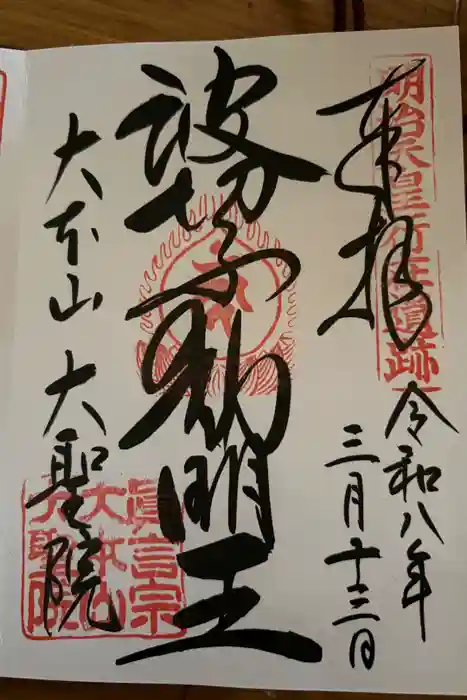 奉拝
明治天皇行在遺跡
令和八年
三月十三日
波切不動明王
大本山 大聖院
眞言宗
大本山
大聖院